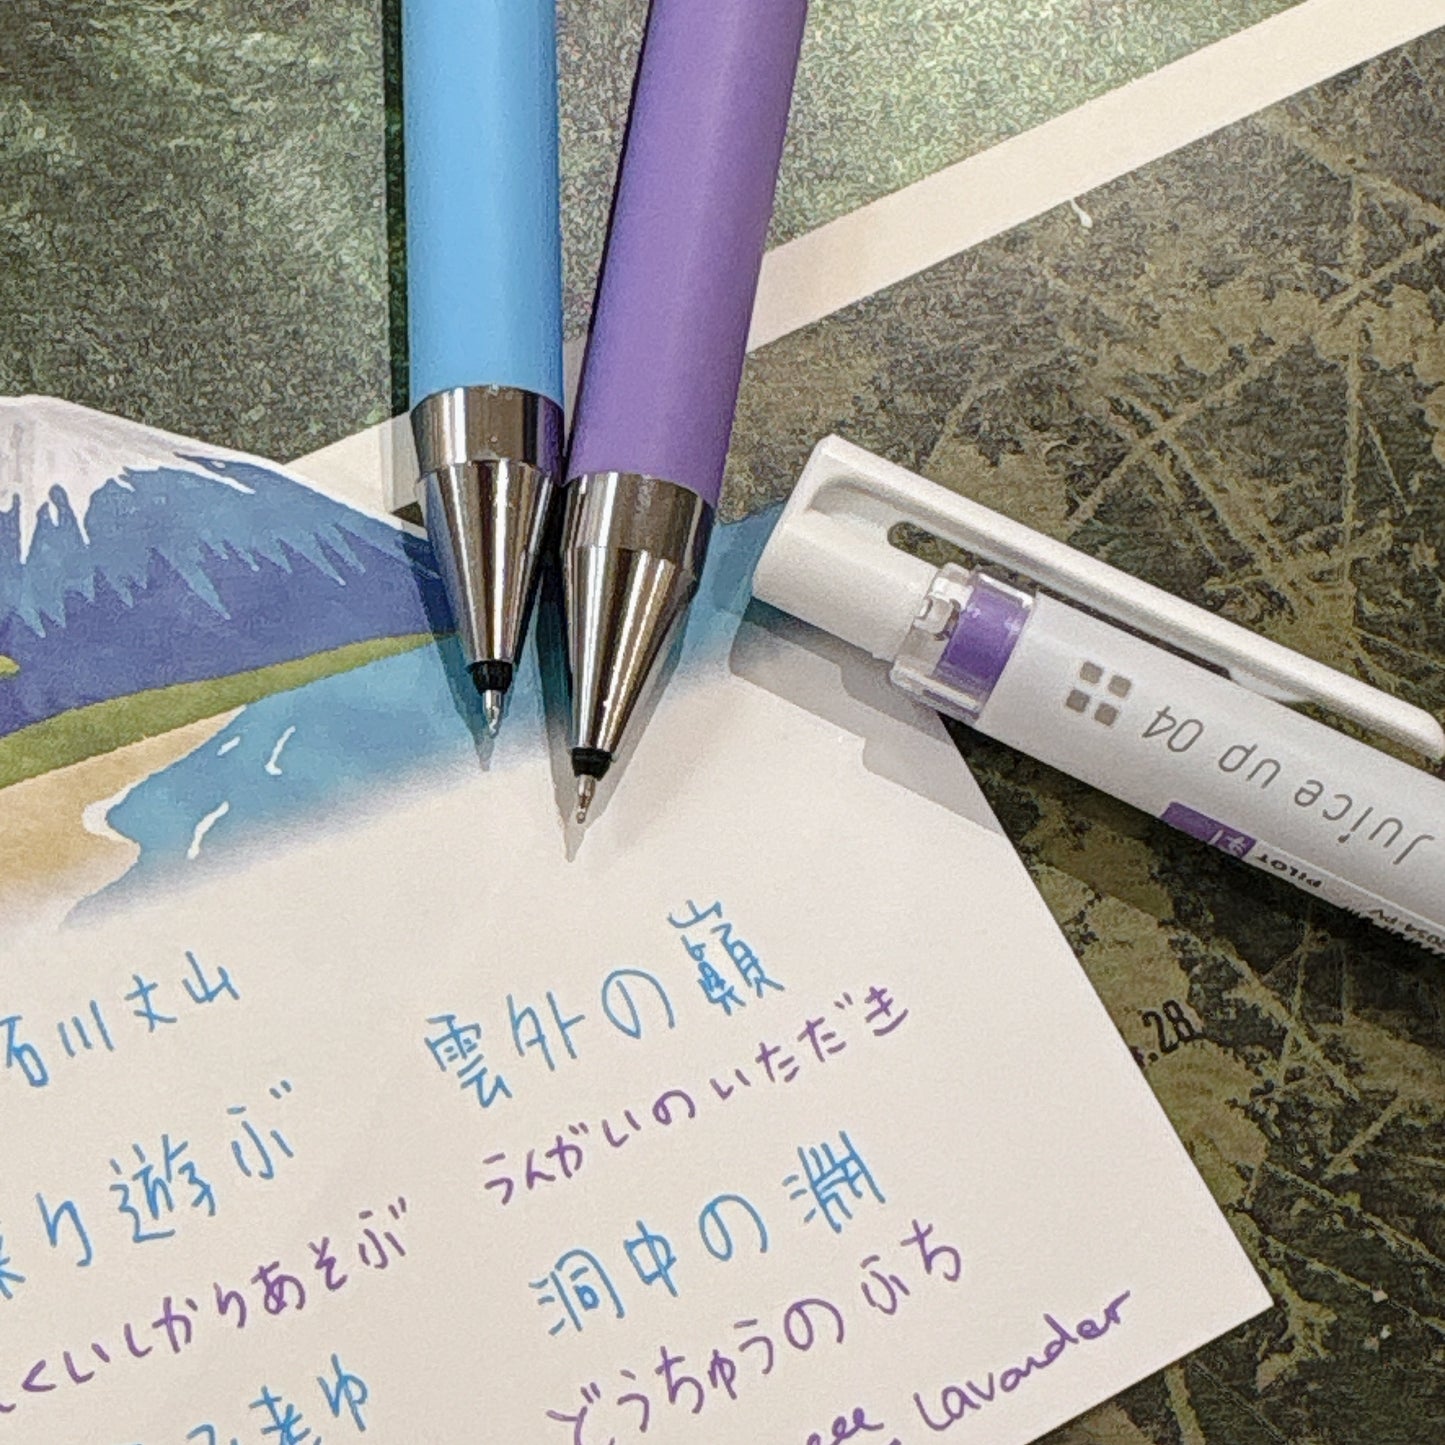 Juice up 04
PILOT
.28
石川丈山
雲外の巓
うんがいのいただき
り遊ぶ
くいしかりあそぶ
洞中の淵
どうちゅうのふち
老ゆ
Lavander